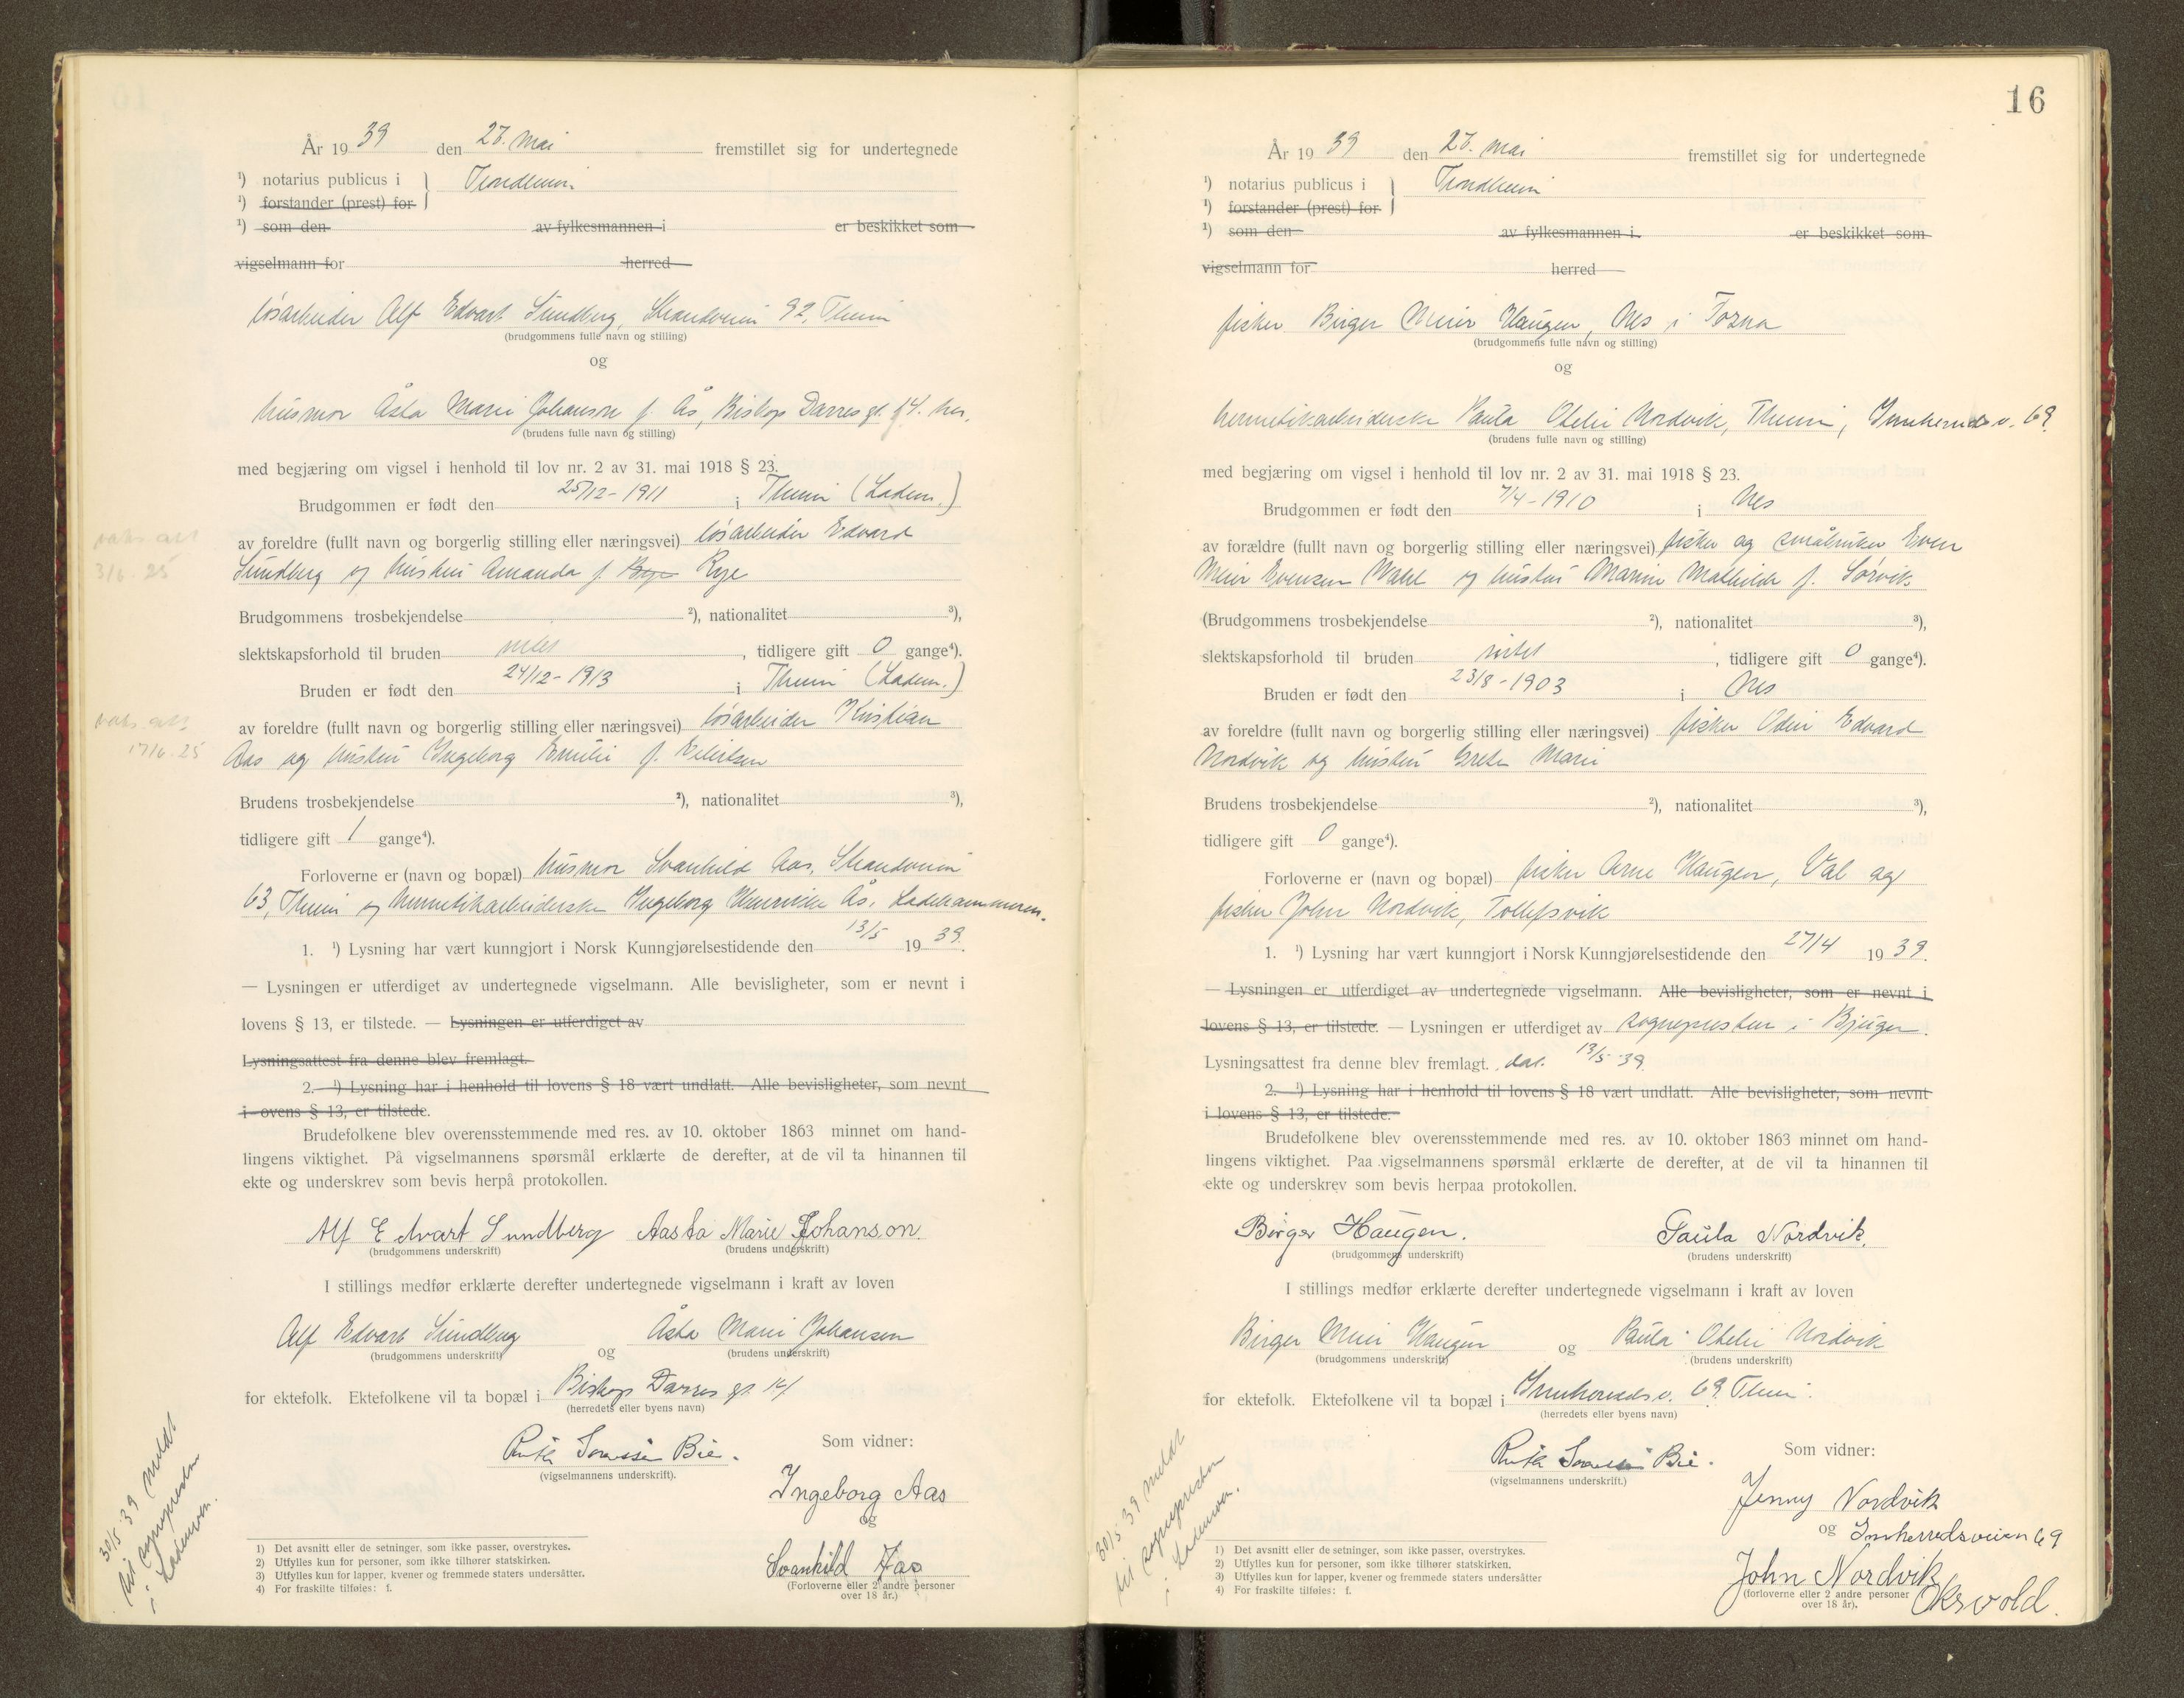 År 1939 den 27. mai fremstillet sig for undertegnede
¹) notarius publicus i } Trondheim
¹) forstander (prest) for
¹) som den av fylkesmannen i er beskikket som
vigselmann for herred
løsarbeider Alf Edvart Sundberg, Strandveien 92, Theim
(brudgommens fulle navn og stilling)
og
husmor Åsta Marie Johanson f. Ås, Bishop Darres gt. 14. her.
(brudens fulle navn og stilling)
med begjæring om vigsel i henhold til lov nr. 2 av 31. mai 1918 § 23.
Brudgommen er født den 25/12-1911 i Theim (Ladem.)
av foreldre (fullt navn og borgerlig stilling eller næringsvei) løsarbeider Edvard
3/6. 25
Sundberg og hustru Amanda f. Rye
Brudgommens trosbekjendelse ²), nationalitet ³),
slektskapsforhold til bruden intet, tidligere gift 0 gange⁴).
Bruden er født den 24/12-1913 i Theim (Ladem.)
av foreldre (fullt navn og borgerlig stilling eller næringsvei) løsarbeider Kristian
17/6. 25
Aas og hustru Ingeborg Emilie f. Eilertsen
Brudens trosbekjendelse ²), nationalitet ³),
tidligere gift 1 gange⁴).
Forloverne er (navn og bopæl) husmor Svanhild Aas, Strandveien
63, Theim og hermetikarbeiderske Ingeborg Henrikke Ås, Ladehammeren.
1. ¹) Lysning har vært kunngjort i Norsk Kunngjørelsestidende den 13/5 1939.
— Lysningen er utferdiget av undertegnede vigselmann. Alle bevisligheter, som er nevnt i
lovens § 13, er tilstede. — Lysningen er utferdiget av
Lysningsattest fra denne blev fremlagt.
2. ¹) Lysning har i henhold til lovens § 18 vært undlatt. Alle bevisligheter, som nevnt
i ovens § 13, er tilstede.
Brudefolkene blev overensstemmende med res. av 10. oktober 1863 minnet om hand-
lingens viktighet. På vigselmannens spørsmål erklærte de derefter, at de vil ta hinannen til
ekte og underskrev som bevis herpå protokollen.
Alf Edvart Sundberg Aasta Marie Johanson.
(brudgommens underskrift) (brudens underskrift)
I stillings medfør erklærte derefter undertegnede vigselmann i kraft av loven
Alf Edvart Sundberg og Åsta Marie Johansen
(brudgommens underskrift) (brudens underskrift)
for ektefolk. Ektefolkene vil ta bopæl i Biskop Darres gt. 14
(herredets eller byens navn)
Som vidner:
Bie.
(vigselmannens underskrift).
Ingeborg Aas
og
Svanhild Aas
(Forloverne eller 2 andre personer
over 18 år.)
30/5 39 meldt
til sognepresten
i Lademoen.
1) Det avsnitt eller de setninger, som ikke passer, overstrykes.
2) Utfylles kun for personer, som ikke tilhører statskirken.
3) Utfylles kun for lapper, kvener og fremmede staters undersåtter.
4) For fraskilte tilføies: f.
16
År 1939 den 27. mai fremstillet sig for undertegnede
¹) notarius publicus i } Trondheim
¹) forstander (prest) for
¹) som den av fylkesmannen i er beskikket som
vigselmann for herred
fisker Birger Meier Haugen, Nes i Fosna
(brudgommens fulle navn og stilling)
og
hermetikarbeiderske Paula Otelie Nordvik, Theim, Innherredsv. 69.
(brudens fulle navn og stilling)
med begjæring om vigsel i henhold til lov nr. 2 av 31. mai 1918 § 23.
Brudgommen er født den 7/4-1910 i Nes
av forældre (fullt navn og borgerlig stilling eller næringsvei) fisker og småbruker Even
Meier Evensen Wahl og hustru Marie Mathilde f. Sørvik
(Brudgommens trosbekjendelse ²), nationalitet ³),
slektskapsforhold til bruden intet, tidligere gift 0 gange⁴).
Bruden er født den 23/8-1903 i Nes
av foreldre (fullt navn og borgerlig stilling eller næringsvei) fisker Odin Edvard
Nordvik og hustru Grete Marie
Brudens trosbekjendelse ²), nationalitet ³),
tidligere gift 0 gange⁴).
Forloverne er (navn og bopæl) fisker Arne Haugen, Val og
fisker John Nordvik, Tollefsvik
1. ¹) Lysning har vært kunngjort i Norsk Kunngjørelsestidende den 27/4 1939.
— Lysningen er utferdiget av undertegnede vigselmann. Alle bevisligheter, som er nevnt i
lovens § 13, er tilstede. — Lysningen er utferdiget av sognepresten i Bjugn.
Lysningsattest fra denne blev fremlagt. dat. 13/5 39.
2. ¹) Lysning har i henhold til lovens § 18 vært undlatt. Alle bevisligheter, som nevnt
i lovens § 13, er tilstede.
Brudefolkene blev overensstemmende med res. av 10. oktober 1863 minnet om hand-
lingens viktighet. Paa vigselmannens spørsmål erklærte de derefter, at de vil ta hinannen til
ekte og underskrev som bevis herpaa protokollen.
Birger Haugen. Paula Nordvik.
(brudgommens underskrift) (brudens underskrift)
I stillings medfør erklærte derefter undertegnede vigselmann i kraft av loven
Birger Meier Haugen og Paula Otelie Nordvik
(brudgommens underskrift) (brudens underskrift)
for ektefolk. Ektefolkene vil ta bopæl i Innherredsv. 69. Theim.
(herredets eller byens navn)
Som vidner:
Bie.
(vigselmannens underskrift.)
Jenny Nordvik
og Innherredsveien 69
John Nordvik
(forloverne eller 2 andre personer Oksvold.
over 18 år).
30/5 39 meldt
til sognepresten
i Lademoen.
1) Det avsnitt eller de setninger, som ikke passer, overstrykes.
2) Utfylles kun for personer, som ikke tilhører statskirken.
3) Utfylles kun for lapper, kvener og fremmede staters undersåtter
4) For fraskilte tilføies: f.